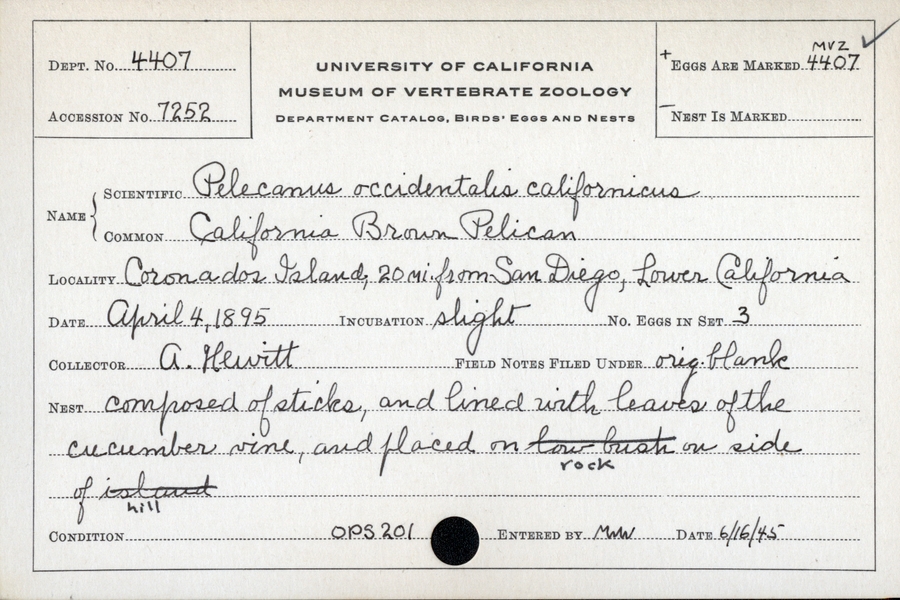 DEPT. No. 4407
ACCESSION No. 7252
UNIVERSITY OF CALIFORNIA
MUSEUM OF VERTEBRATE ZOOLOGY
DEPARTMENT CATALOG, BIRDS' EGGS AND NESTS
MVZ ✓
+ EGGS ARE MARKED 4407
— NEST IS MARKED
NAME { SCIENTIFIC Pelecanus occidentalis californicus
COMMON California Brown Pelican
LOCALITY Coronados Island, 20 mi. from San Diego, Lower California
DATE April 4, 1895 INCUBATION slight NO. EGGS IN SET 3
COLLECTOR A. Hewitt FIELD NOTES FILED UNDER orig. blank
NEST composed of sticks, and lined with leaves of the
cucumber vine, and placed on low bush on side
rock
of island
hill
CONDITION OPS 201 ENTERED BY MWW DATE 6/16/45